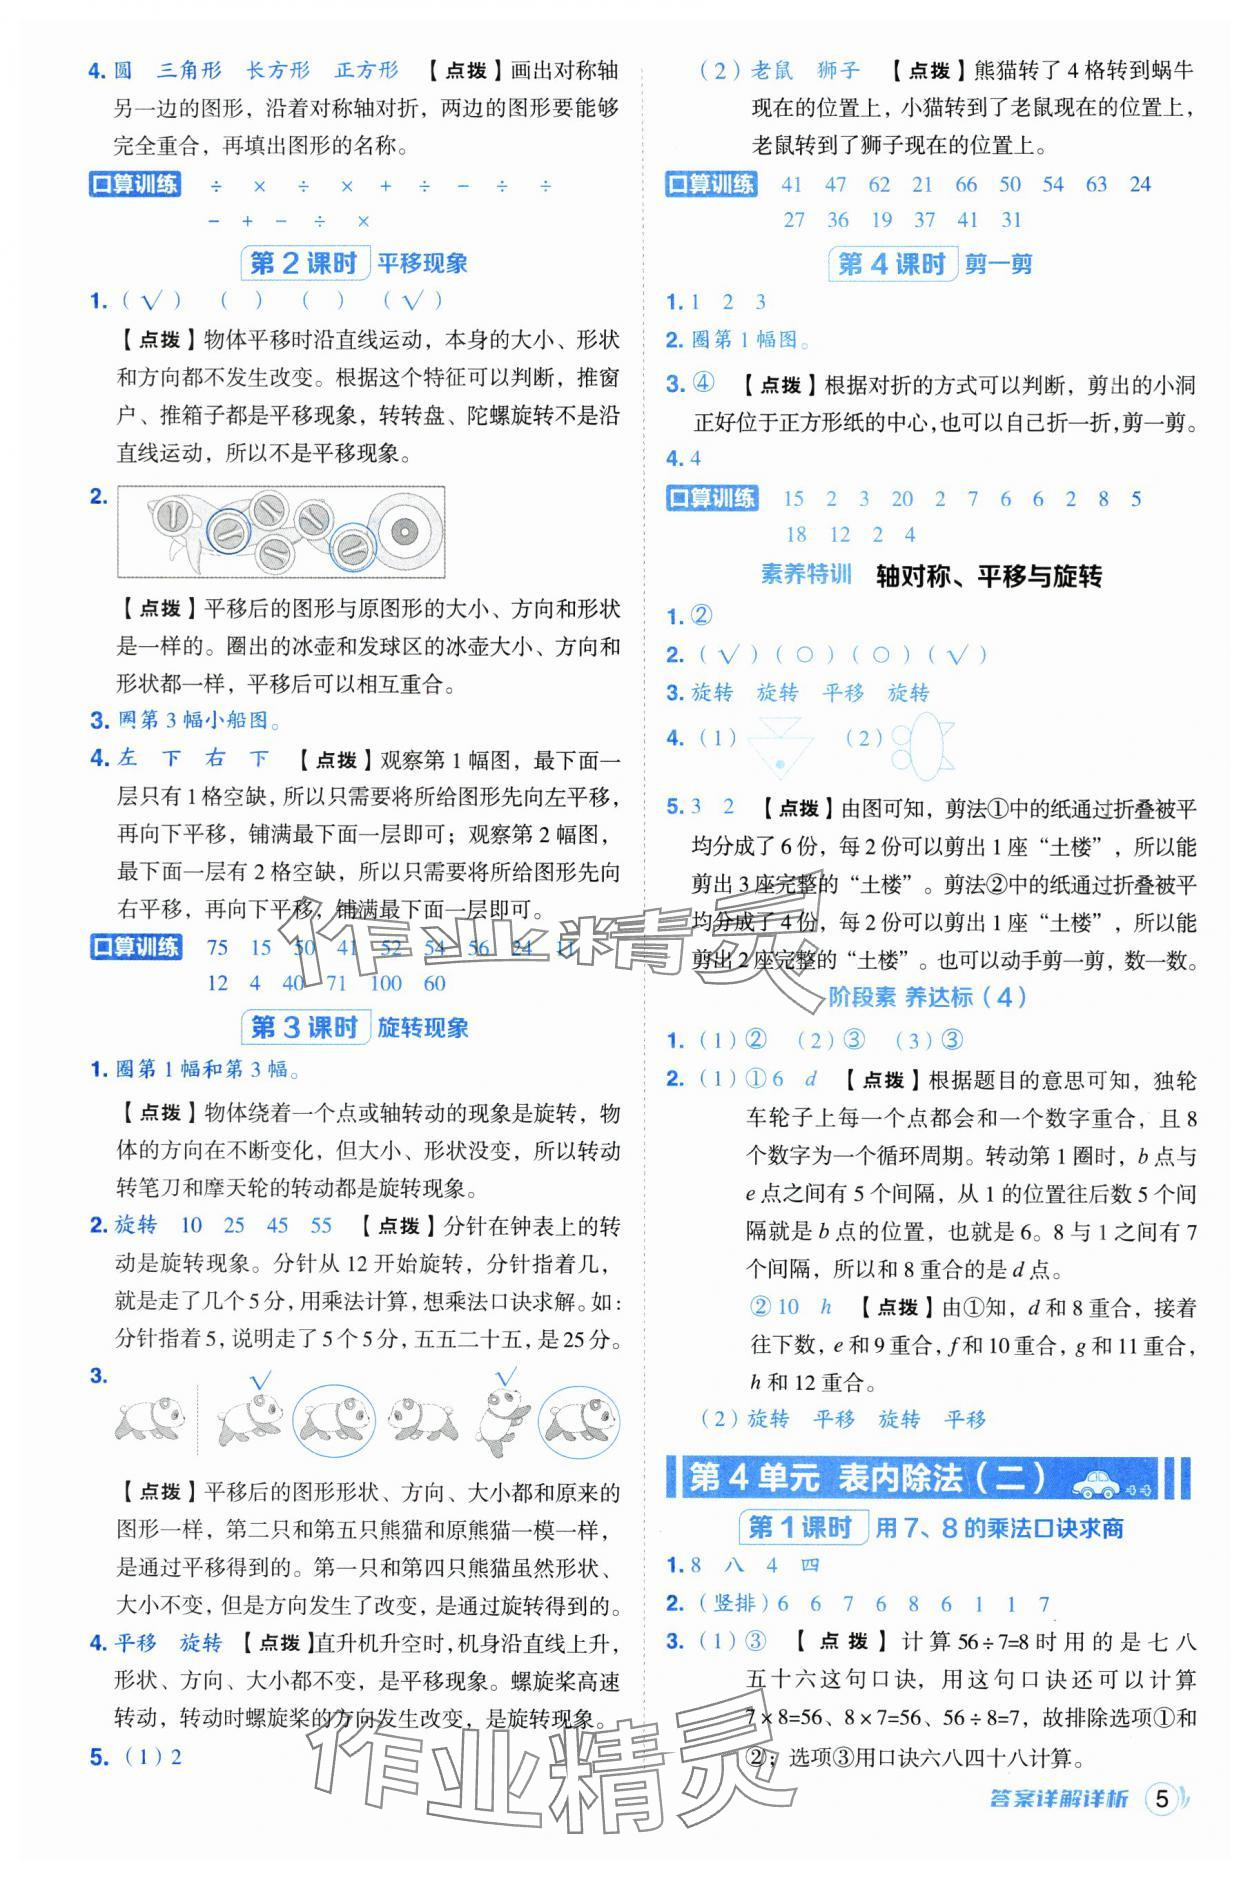 4. 圆 三角形 长方形 正方形 【点拨】画出对称轴
另一边的图形，沿着对称轴对折，两边的图形要能够
完全重合，再填出图形的名称。
口算训练 ÷ × ÷ × + ÷ - ÷ ÷
- + - ÷ ×
第 2 课时 平移现象
1.（√）（ ）（ ）（√）
【点拨】物体平移时沿直线运动，本身的大小、形状
和方向都不发生改变。根据这个特征可以判断，推窗
户、推箱子都是平移现象，转转盘、陀螺旋转不是沿
直线运动，所以不是平移现象。
2.
【点拨】平移后的图形与原图形的大小、方向和形状
是一样的。圈出的冰壶和发球区的冰壶大小、方向和
形状都一样，平移后可以相互重合。
3. 圈第 3 幅小船图。
4. 左 下 右 下 【点拨】观察第 1 幅图，最下面一
层只有 1 格空缺，所以只需要将所给图形先向左平移，
再向下平移，铺满最下面一层即可；观察第 2 幅图，
最下面一层有 2 格空缺，所以只需要将所给图形先向
右平移，再向下平移，铺满最下面一层即可。
口算训练 75 15 50 41 52 54 56 24 11
12 4 40 71 100 60
第 3 课时 旋转现象
1. 圈第 1 幅和第 3 幅。
【点拨】物体绕着一个点或轴转动的现象是旋转，物
体的方向在不断变化，但大小、形状没变，所以转动
转笔刀和摩天轮的转动都是旋转现象。
2. 旋转 10 25 45 55 【点拨】分针在钟表上的转
动是旋转现象。分针从 12 开始旋转，分针指着几，
就是走了几个 5 分，用乘法计算，想乘法口诀求解。如：
分针指着 5，说明走了 5 个 5 分，五五二十五，是 25 分。
3.
√ √
【点拨】平移后的图形形状、方向、大小都和原来的
图形一样，第二只和第五只熊猫和原熊猫一模一样，
是通过平移得到的。第一只和第四只熊猫虽然形状、
大小不变，但是方向发生了改变，是通过旋转得到的。
4. 平移 旋转 【点拨】直升机升空时，机身沿直线上升，
形状、方向、大小都不变，是平移现象。螺旋桨高速
转动，转动时螺旋桨的方向发生改变，是旋转现象。
5.（1）2
（2）老鼠 狮子 【点拨】熊猫转了 4 格转到蜗牛
现在的位置上，小猫转到了老鼠现在的位置上，
老鼠转到了狮子现在的位置上。
口算训练 41 47 62 21 66 50 54 63 24
27 36 19 37 41 31
第 4 课时 剪一剪
1. 1 2 3
2. 圈第 1 幅图。
3. ④ 【点拨】根据对折的方式可以判断，剪出的小洞
正好位于正方形纸的中心，也可以自己折一折，剪一剪。
4. 4
口算训练 15 2 3 20 2 7 6 6 2 8 5
18 12 2 4
素养特训 轴对称、平移与旋转
1. ②
2.（√）（○）（○）（√）
3. 旋转 旋转 平移 旋转
4.（1） （2）
5. 3 2 【点拨】由图可知，剪法①中的纸通过折叠被平
均分成了 6 份，每 2 份可以剪出 1 座“土楼”，所以能
剪出 3 座完整的“土楼”。剪法②中的纸通过折叠被平
均分成了 4 份，每 2 份可以剪出 1 座“土楼”，所以能
剪出 2 座完整的“土楼”。也可以动手剪一剪，数一数。
阶段素 养达标（4）
1.（1）② （2）③ （3）③
2.（1）①6 d 【点拨】根据题目的意思可知，独轮
车轮子上每一个点都会和一个数字重合，且 8
个数字为一个循环周期。转动第 1 圈时，b 点与
e 点之间有 5 个间隔，从 1 的位置往后数 5 个间
隔就是 b 点的位置，也就是 6。8 与 1 之间有 7
个间隔，所以和 8 重合的是 d 点。
②10 h 【点拨】由①知，d 和 8 重合，接着
往下数，e 和 9 重合，f 和 10 重合，g 和 11 重合，
h 和 12 重合。
（2）旋转 平移 旋转 平移
第 4 单元 表内除法（二）
第 1 课时 用 7、8 的乘法口诀求商
1. 8 八 4 四
2.（竖排）6 6 7 6 8 6 1 1 7
3.（1）③ 【点拨】计算 56÷7=8 时用的是七八
五十六这句口诀，用这句口诀还可以计算
7×8=56、8×7=56、56÷8=7，故排除选项①和
②；选项③用口诀六八四十八计算。
答案详解详析 5
作业精灵
作业精灵